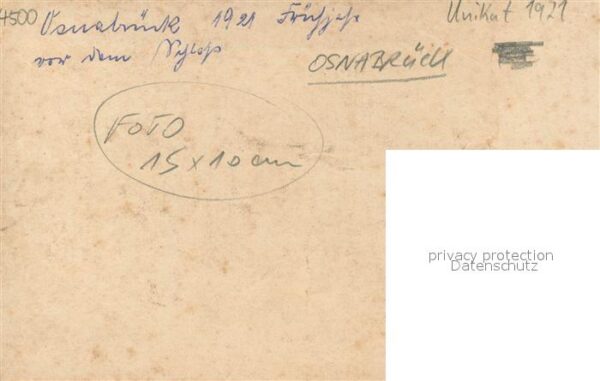 4500
Osnabrück 1921 Frühjahr
vor dem Schloß
Unikat 1921
OSNABRÜCK
FOTO
15 x 10 cm
privacy protection
Datenschutz